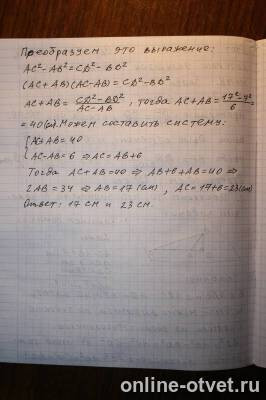 Преобразуем это выражение:
AC²-AB²=CD²-BD²
(AC+AB)(AC-AB)=CD²-BD²
AC+AB=\frac{CD²-BD²}{AC-AB}, тогда AC+AB=\frac{17²-7²}{6}=
=40(см). Можем составить систему:
{AC+AB=40
{AC-AB=6 ⇒ AC=AB+6
Тогда AC+AB=40 ⇒ AB+6+AB=40 ⇒
2AB=34 ⇒ AB=17(см), AC=17+6=23(см)
Ответ: 17 см и 23 см.
online-otvet.ru